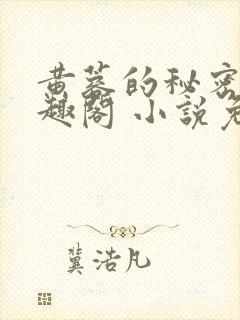 黄蓉的秘密
趣閣 小說免
冀浩凡